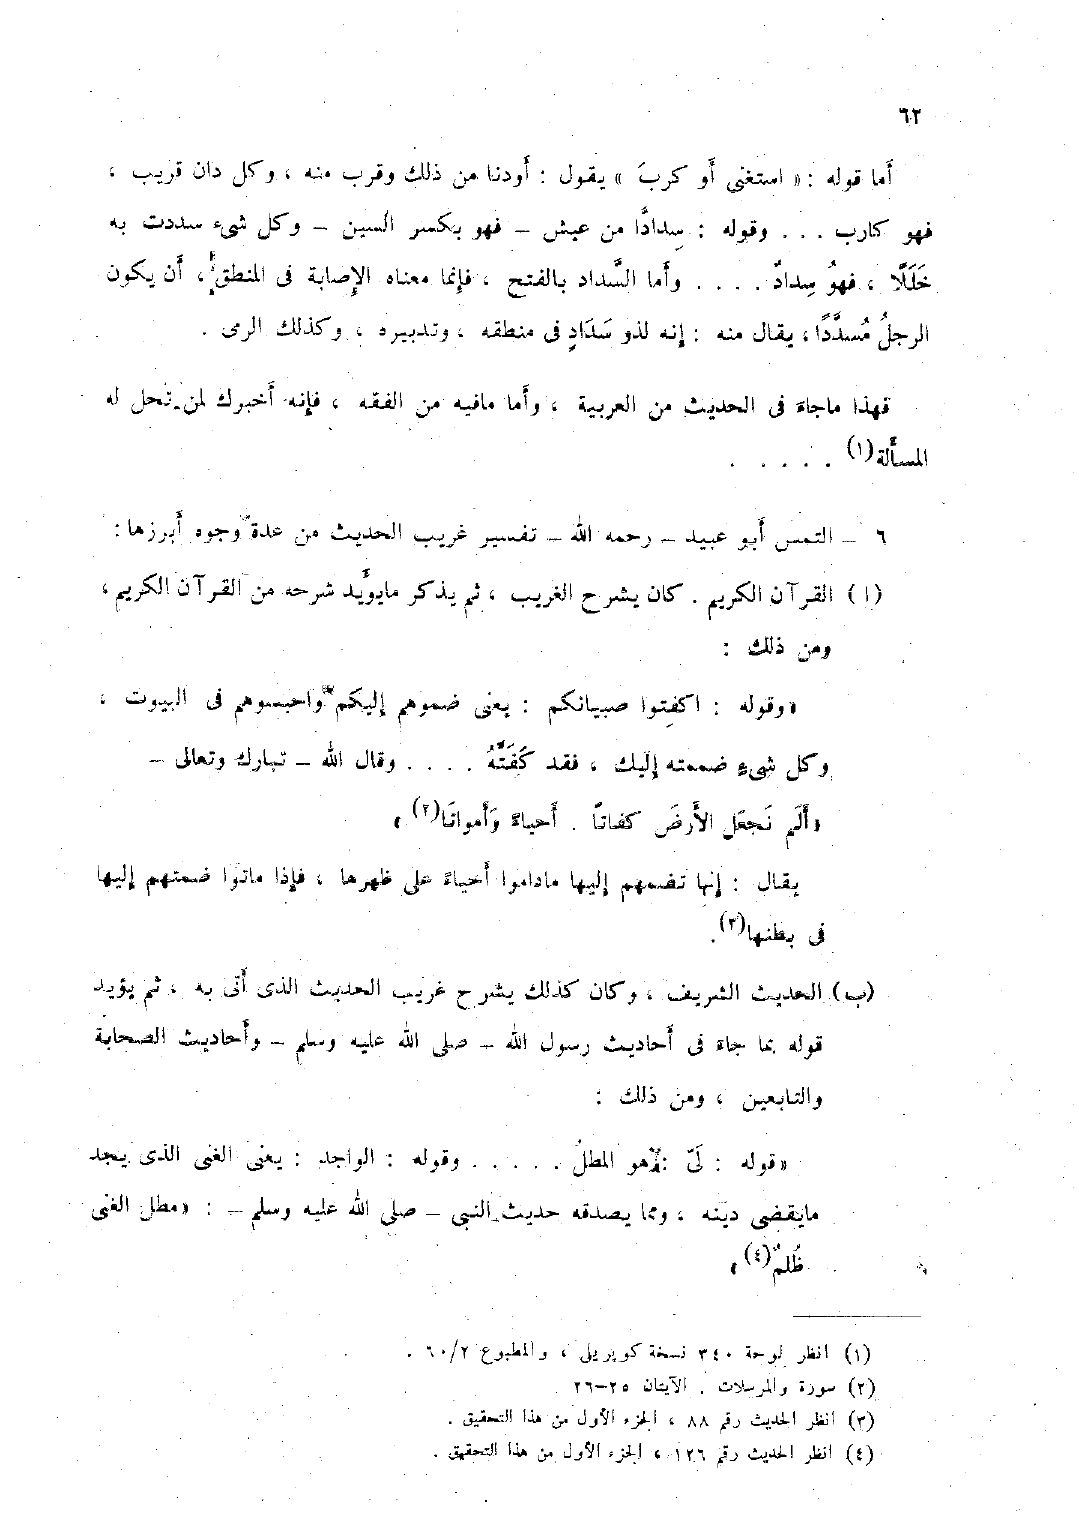 ٦٢
أما قوله : « استغنى أو كربَ » يقول : أودنا من ذلك وقرب منه ، وكل دان قريب ،
فهو كارب . . . وقوله : سِدادًا من عيش – فهو بكسر السين – وكل شىء سددت به
خَلَلًا ، فهوُ سِدادٌ . . . . وأما السَّداد بالفتح ، فإنما معناه الإصابة فى المنطق ، أن يكون
الرجلُ مُسدَّدًا ، يقال منه : إنه لذو سَدَادٍ فى منطقه ، وتدبيره ، وكذلك الرمى .
فهذا ماجاءَ فى الحديث من العربية ، وأما مافيه من الفقه ، فإنه أخبرك لمن تحل له
المسألة(١) . . . . .
٦ – التمس أبو عبيد – رحمه الله – تفسير غريب الحديث من عدة وجوه أبرزها :
(ا) القرآن الكريم . كان يشرح الغريب ، ثم يذكر مايؤَيد شرحه من القرآن الكريم ،
ومن ذلك :
«وقوله : اكفِتوا صبيانكم : يعنى ضموهم إليكم واحبسوهم فى البيوت ،
وكل شىءٍ ضممته إليك ، فقد كَفَتَّهُ . . . . وقال الله – تبارك وتعالى –
«أَلَم نَجعَل الأَرضَ كفاتاً . أَحياءً وَأَمواتًا(٢)»
يقال : إنها تضمهم إليها ماداموا أحياءً على ظهرها ، فإذا ماتوا ضمتهم إليها
فى بطنها(٣).
(ب) الحديث الشريف ، وكان كذلك يشرح غريب الحديث الذى أتى به ، ثم يؤيد
قوله بما جاءَ فى أحاديث رسول الله – صلى الله عليه وسلم – وأحاديث الصحابة
والتابعين ، ومن ذلك :
«قوله : لَىّ : هو المطلُ . . . . . وقوله : الواجد : يعنى الغنى الذى يجد
مايقضى دينه ، ومما يصدقه حديث النبى – صلى الله عليه وسلم – : «مطل الغنى
ظُلمٌ(٤)»
(١) انظر لوحة ٣٤٠ نسخة كوبريلى ، والمطبوع ٦٠/٢ .
(٢) سورة والمرسلات . الآيتان ٢٥–٢٦
(٣) انظر الحديث رقم ٨٨ ، الجزء الأول من هذا التحقيق .
(٤) انظر الحديث رقم ١٢٦ ، الجزء الأول من هذا التحقيق .